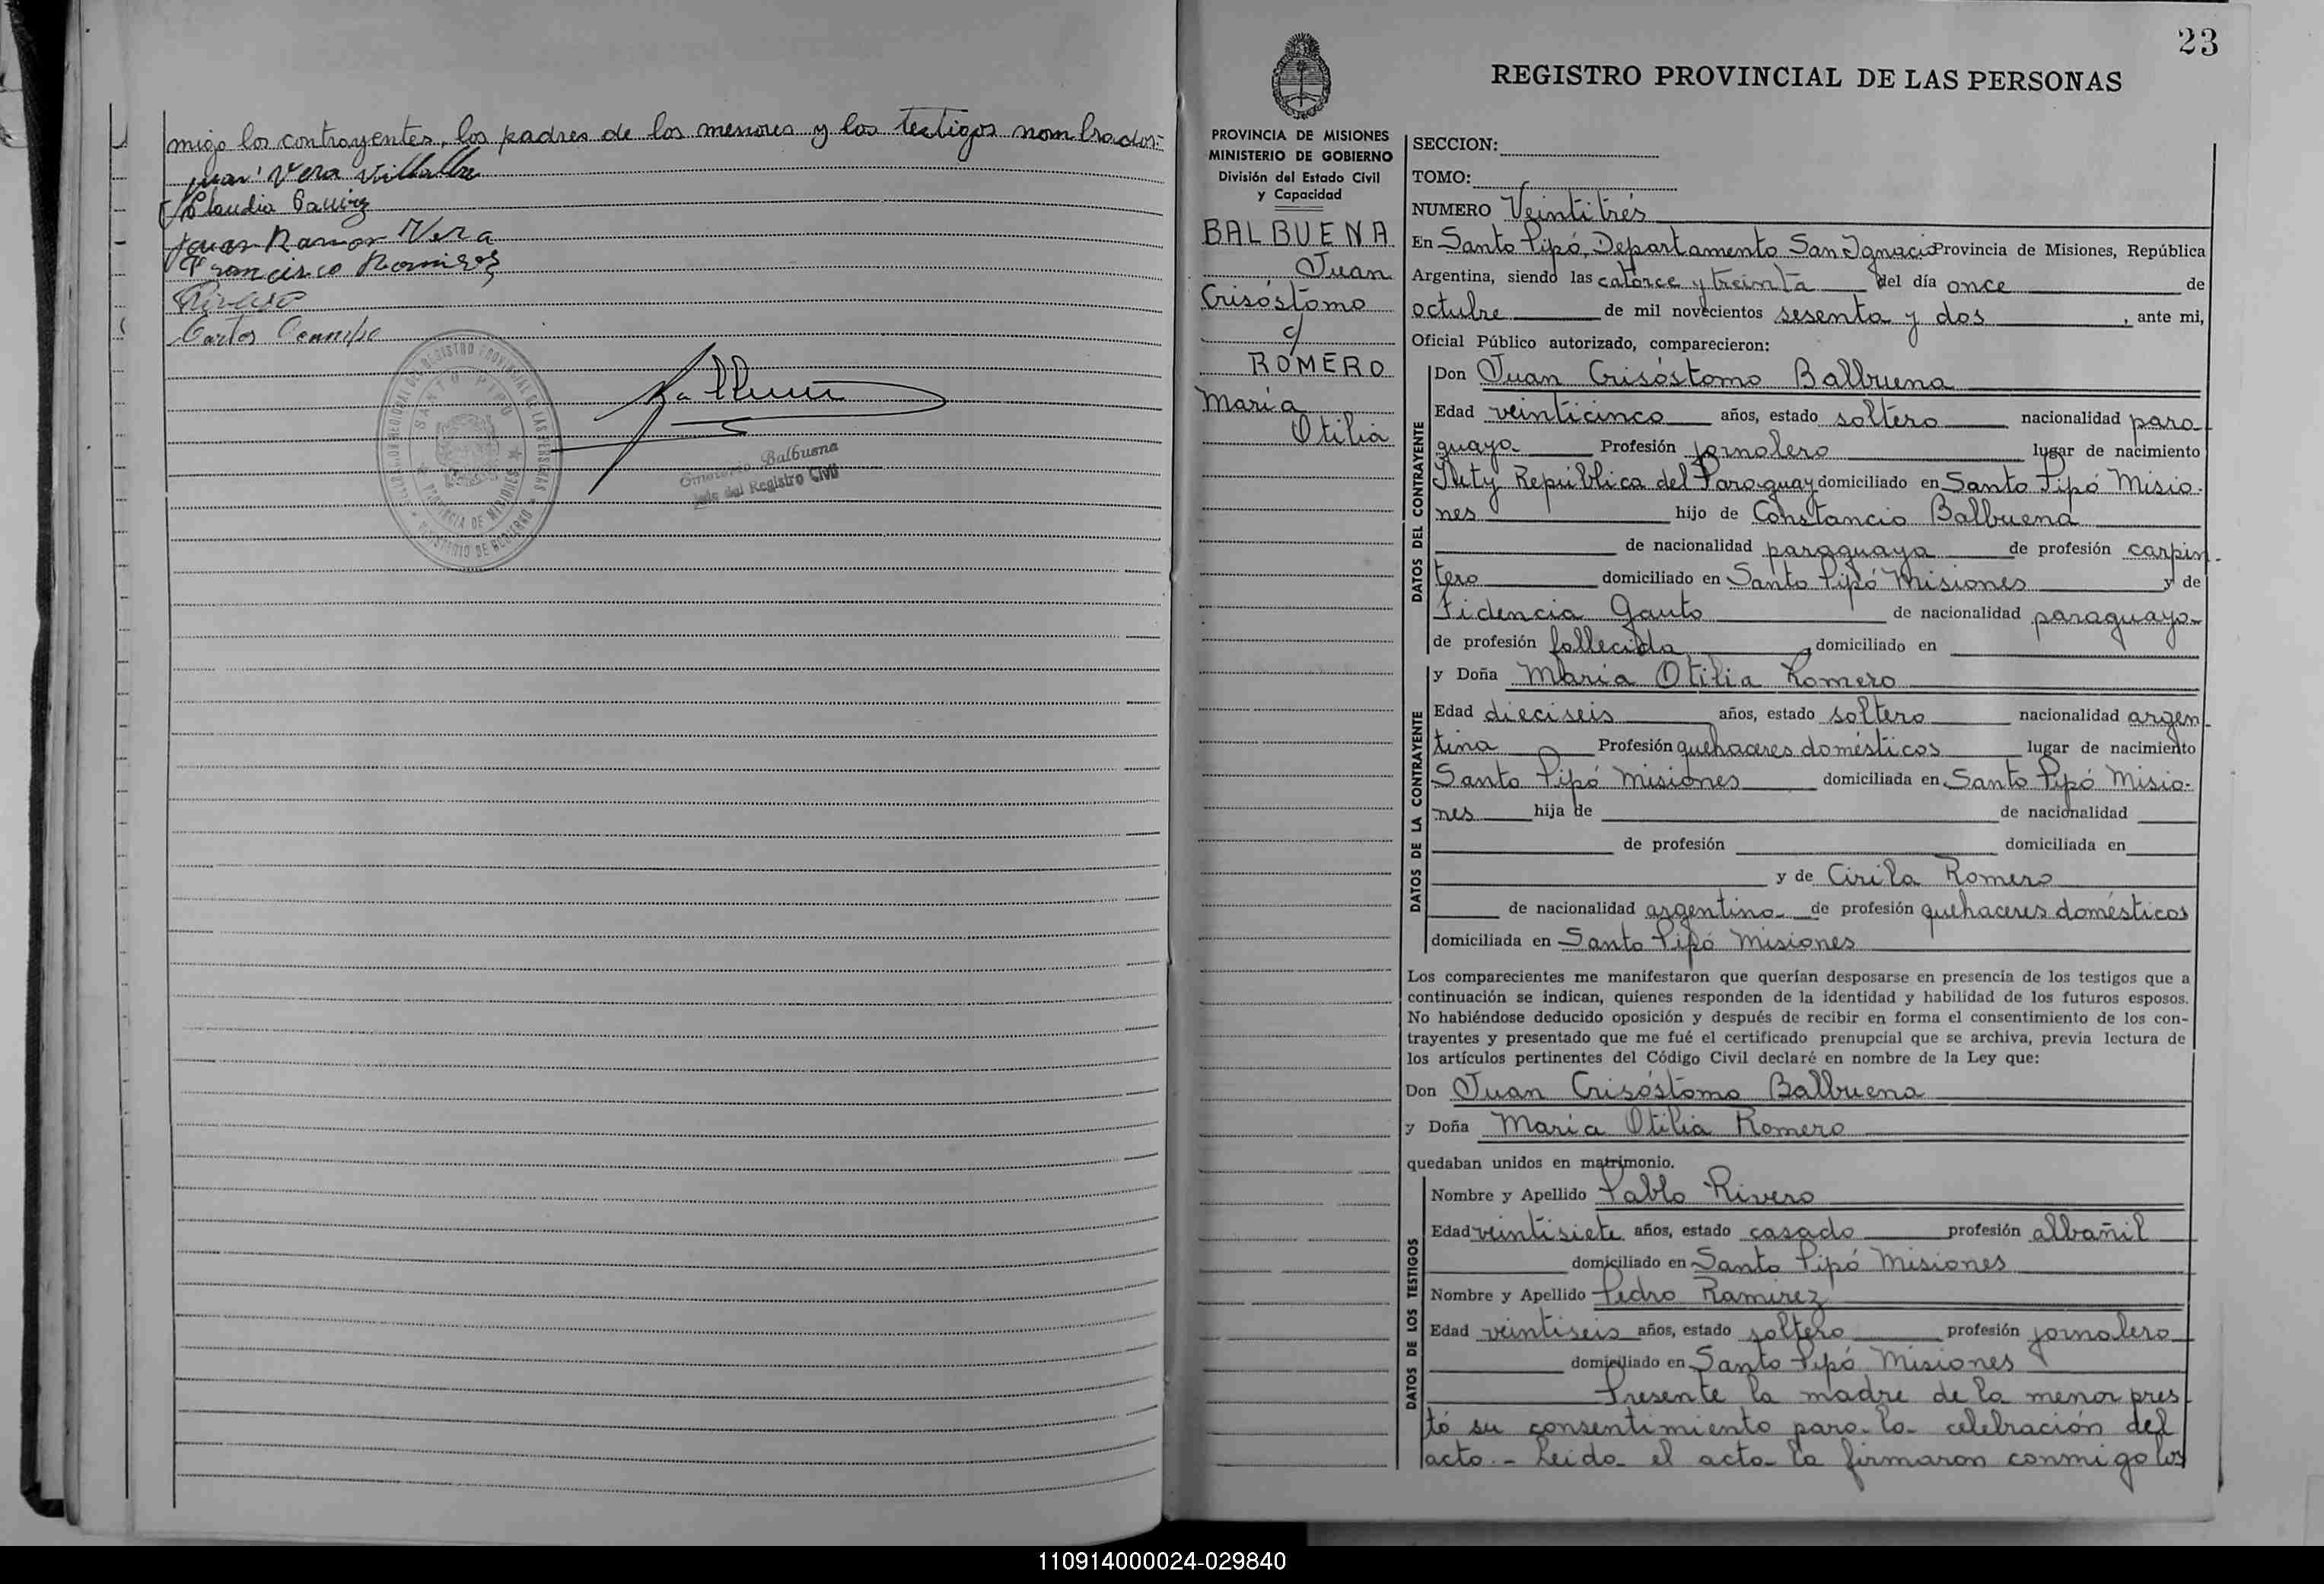 migo los contrayentes, los padres de los menores y los testigos nombrados:-
Juan Vera Villalba
Claudia Ramirez
Juan Ramon Vera
Francisco Ramirez
Carlos Ocampo
SANTO PIPO
PROVINCIA DE MISIONES
MINISTERIO DE GOBIERNO
Balbuena
Jefe del Registro Civil
23
REGISTRO PROVINCIAL DE LAS PERSONAS
PROVINCIA DE MISIONES
MINISTERIO DE GOBIERNO
División del Estado Civil
y Capacidad
BALBUENA
Juan
Crisóstomo
c/
ROMERO
María
Otilia
SECCION:
TOMO:
NUMERO Veintitrés
En Santo Pipó, Departamento San Ignacio Provincia de Misiones, República
Argentina, siendo las catorce y treinta del día once de
octubre de mil novecientos sesenta y dos, ante mi,
Oficial Público autorizado, comparecieron:
DATOS DEL CONTRAYENTE
Don Juan Crisóstomo Balbuena
Edad veinticinco años, estado soltero nacionalidad para
guaya Profesión jornalero lugar de nacimiento
República del Paraguay domiciliado en Santo Pipó Misio-
nes hijo de Constancio Balbuena
de nacionalidad paraguaya de profesión carpin-
tero domiciliado en Santo Pipó Misiones y de
Fidencia Gauto de nacionalidad paraguaya
de profesión fallecida, domiciliado en
DATOS DE LA CONTRAYENTE
y Doña María Otilia Romero
Edad dieciseis años, estado soltera nacionalidad argen-
tina Profesión quehaceres domésticos lugar de nacimiento
Santo Pipó Misiones domiciliada en Santo Pipó Misio-
nes hija de de nacionalidad
de profesión domiciliada en
y de Cirila Romero
de nacionalidad argentina de profesión quehaceres domésticos
domiciliada en Santo Pipó Misiones
Los comparecientes me manifestaron que querían desposarse en presencia de los testigos que a
continuación se indican, quienes responden de la identidad y habilidad de los futuros esposos.
No habiéndose deducido oposición y después de recibir en forma el consentimiento de los con-
trayentes y presentado que me fué el certificado prenupcial que se archiva, previa lectura de
los artículos pertinentes del Código Civil declaré en nombre de la Ley que:
Don Juan Crisóstomo Balbuena
y Doña María Otilia Romero
quedaban unidos en matrimonio.
DATOS DE LOS TESTIGOS
Nombre y Apellido Pablo Rivero
Edad veintisiete años, estado casado profesión albañil
domiciliado en Santo Pipó Misiones
Nombre y Apellido Pedro Ramirez
Edad veintiseis años, estado soltero profesión jornalero
domiciliado en Santo Pipó Misiones
Presente la madre de la menor pres-
tó su consentimiento para la celebración del
acto.- Leida el acta la firmaron conmigo los
110914000024-029840